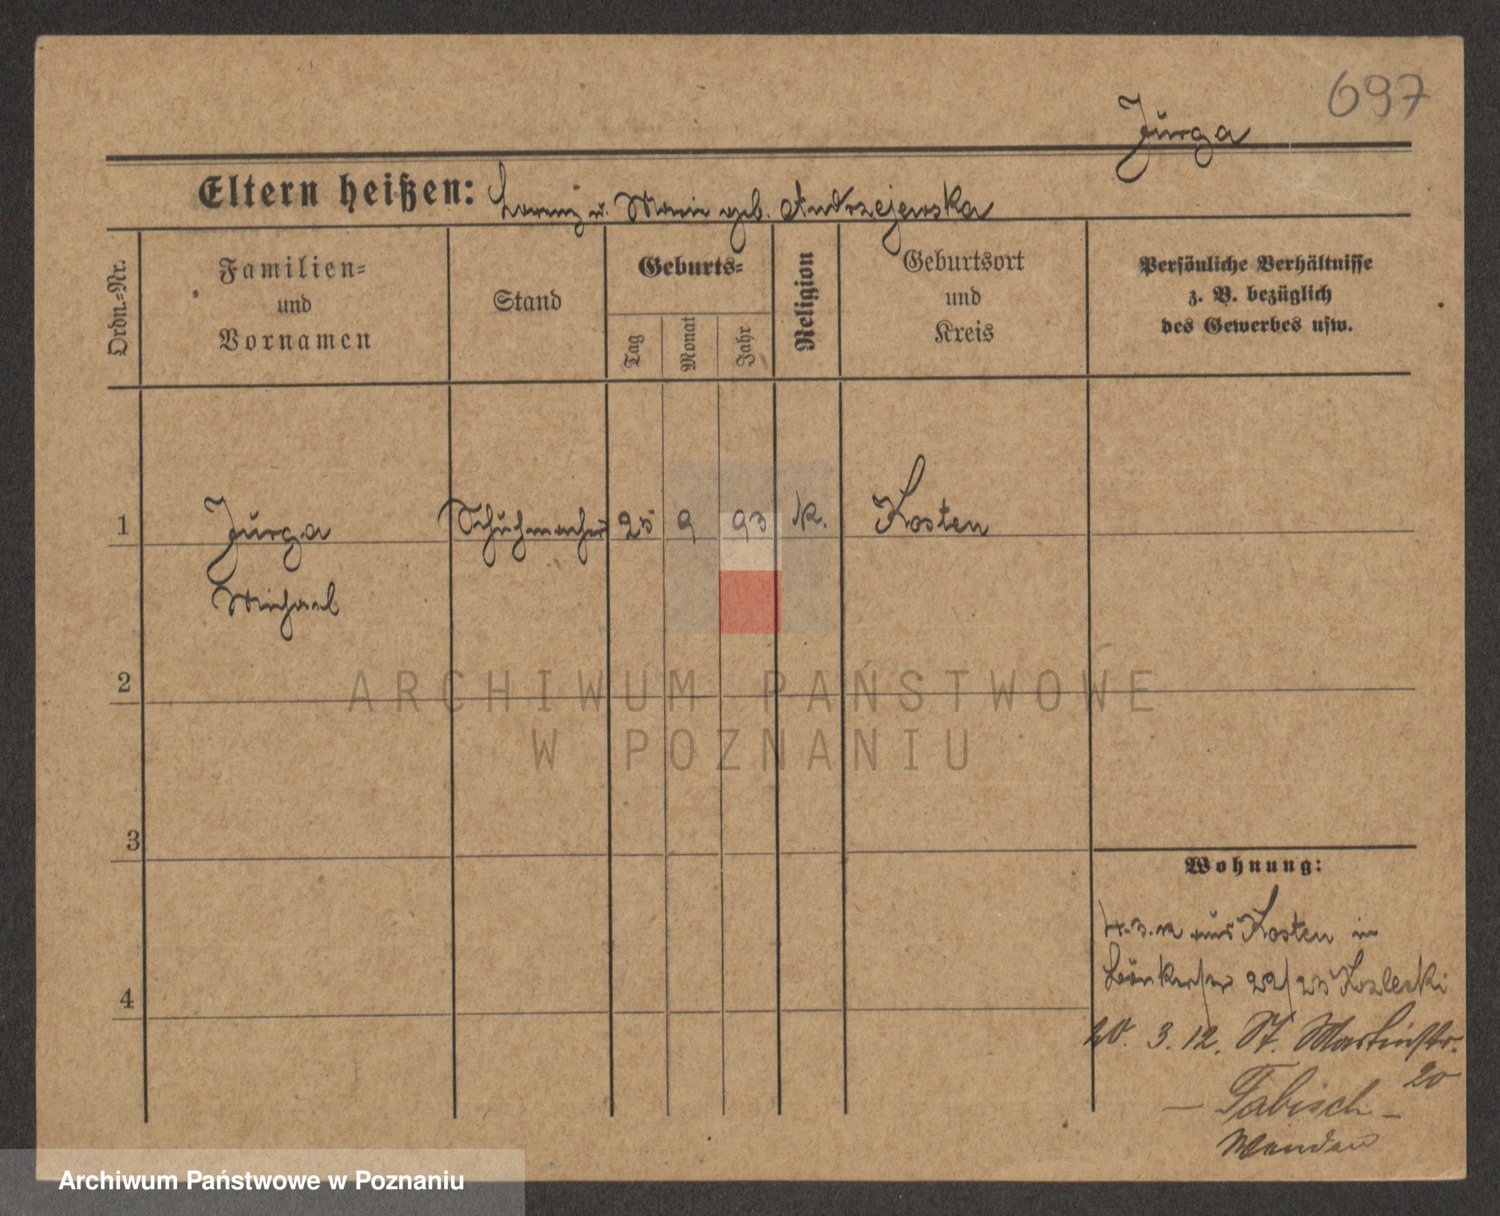 697
Jurga
Eltern heißen: Lorenz u. Marie geb. Andrzejewska
Ordn.=Nr.
Familien=
und
Vornamen
Stand
Geburts=
Tag
Monat
Jahr
Religion
Geburtsort
und
Kreis
Persönliche Verhältnisse
z. B. bezüglich
des Gewerbes usw.
1 Jurga Schuhmacher 25 9 93 k. Kosten
Michael
2
3
4
Wohnung:
4.3.12 aus Kosten in
22/23 Kozlecki
20. 3. 12. St. Martinstr.
20
— Fabisch —
ARCHIWUM PAŃSTWOWE
W POZNANIU
Archiwum Państwowe w Poznaniu